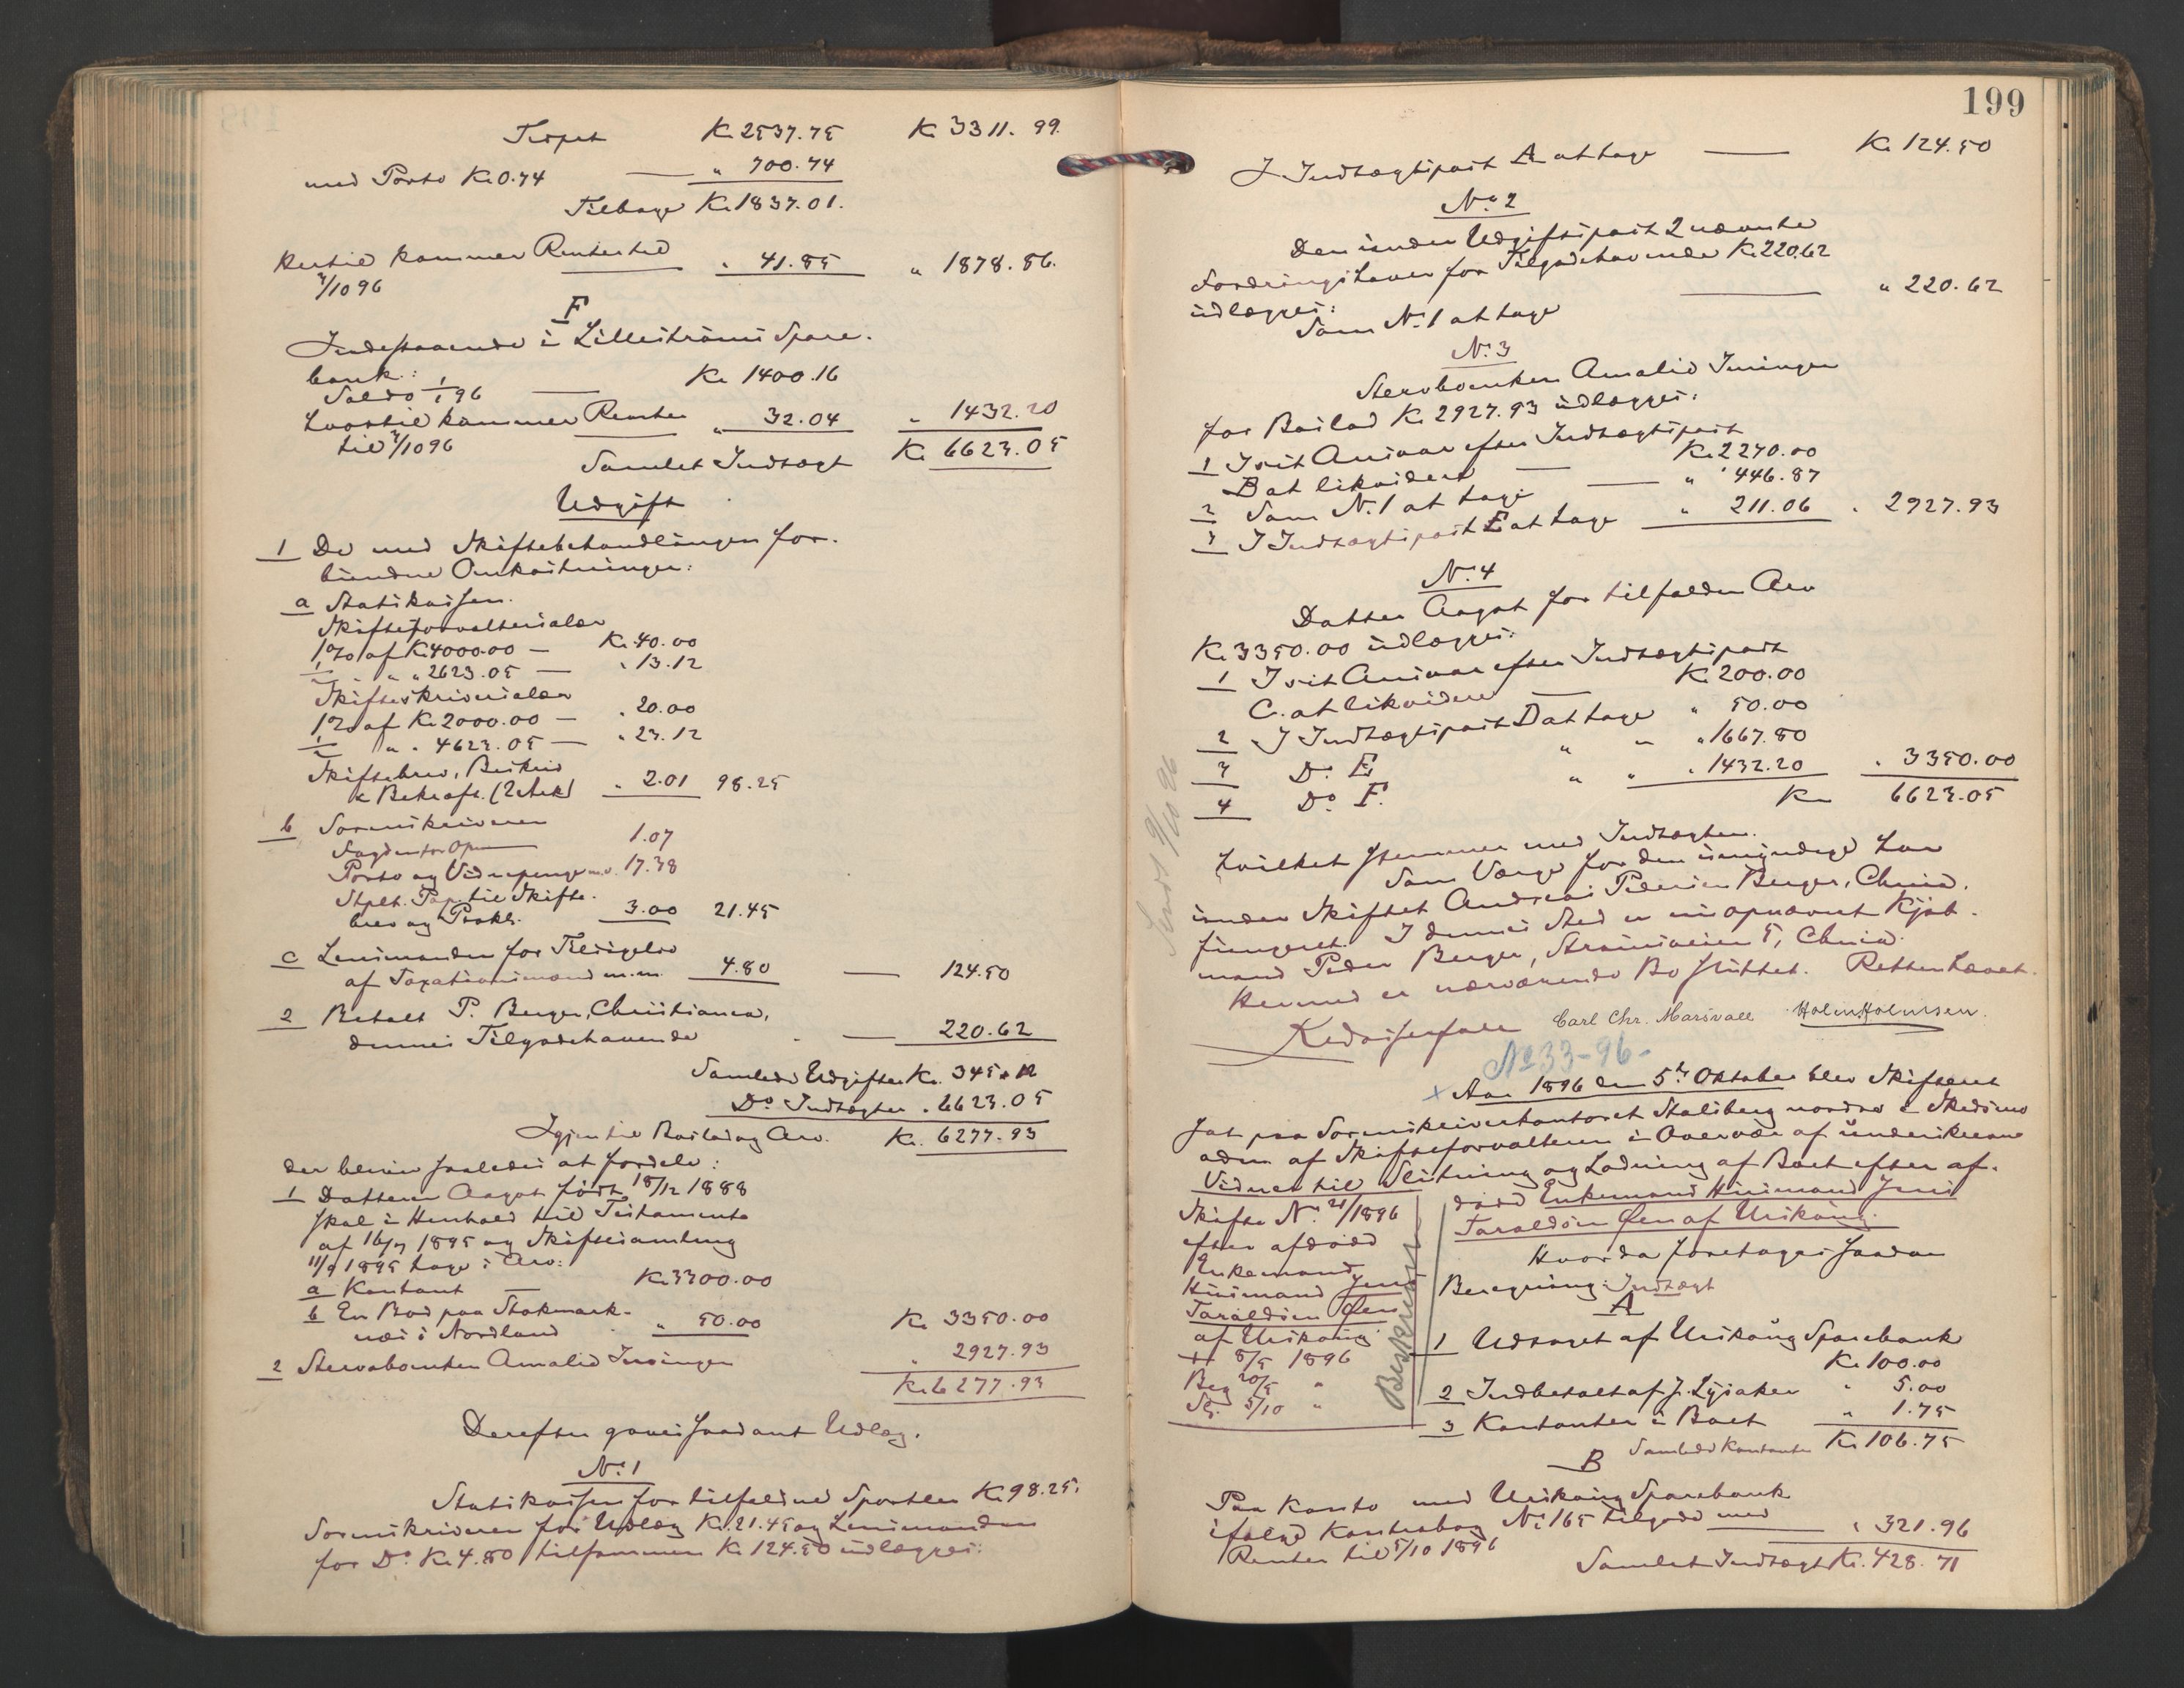 K. 2537.75 K. 3311.99
med Porto K. 0.74 — " 700.74
Tilbage K. 1837.01.
hertil kommer Renter til " 41.85 " 1878.86.
3/10 96
F
Indestaaende i Lillestrøms Spare-
bank:
Saldo 1/1 96 — K. 1400.16
hvortil kommer Renter " 32.04 " 1432.20
til 3/10 96
Samlet Indtægt K. 6623.05
Udgift
1 De med Skiftebehandlingen for-
bundne Omkostninger:
a Statskassen.
Skifteforvaltersalær
1% af K. 4000.00 — K. 40.00
½ " " " 2623.05 — " 13.12
Skifteskriversalær
1% af K. 2000.00 — " 20.00
½ " " 4623.05 — " 23.12
Skiftebrev, Beskriv
& Bekræft. (2 Ark) " 2.01 98.25
b Sorenskriveren
1.07
Porto og Vidnepenge m.v. 17.38
Stplt. Pap. til Skifte-
brev og Prokl. 3.00 21.45
c Lensmanden for Tilsigelse
af Taxationsmænd m.m. 4.80 — 124.50
2 Betalt P. Berger, Christiania,
dennes Tilgodehavende — 220.62
Samlede Udgifter K. 345.12
Do Indtægter " 6623.05
Igjen til Boslod og Arv. K. 6277.93
der bliver saaledes at fordele:
1 Datteren Aagot født 18/12 1888
skal i Henhold til Testamente
af 16/7 1895 og Skiftesamling
11/9 1895 tage i Arv:
a Kontant — K. 3300.00
b En Bod paa Stokmark-
næs i Nordland " 50.00 K. 3350.00
2 Stervboenken Amalie " 2927.93
K. 6277.93
Derefter gaves saadant Udlæg.
No. 1
Statskassen for tilfaldne Sportler K. 98.25,
Sorenskriveren for Udlæg K. 21.45 og Lensmanden
for Do K. 4.80 tilsammen K. 124.50 udlægges:
199
I Indtægtspost A at tage — K. 124.50
No. 2
Den under Udgiftspost 2 nævnte
Fordringshaver for Tilgodehavende K. 220.62
udlægges: — " 220.62
Som No. 1 at tage
No. 3
Stervboenken Amalie
for Boslod K. 2927.93 udlægges:
1 I sit Ansvar efter Indtægtspost
B at likvidere — K. 2270.00
2 Som No. 1 at tage — " 446.87
3 I Indtægtspost E at tage " 211.06 " 2927.93
No. 4
Datter Aagot for tilfalden Arv
K. 3350.00 udlægges:
1 I sit Ansvar efter Indtægtspost
C. at likvidere — K. 200.00
2 I Indtægtspost D at tage " 50.00
3 Do E " " " 1667.80
4 Do F. " " " 1432.20 " 3350.00
K. 6623.05
hvilket stemmer med Indtægten.
Som Værge for den umyndige har
under Skiftet Andreas Pedersen Berger, Chrnia.
fungeret. I dennes Sted er nu opnævnt Kjøb-
mand Peder Berger, Strømsveien 5, Chrnia.
Hermed er nærværende Bo sluttet. Retten hævet.
Carl Chr. Marsvall Holm Holmsen.
No 33-96-
x Aar 1896 den 5te Oktober blev Skifteret
sat paa Sorenskriverkontoret Stalsberg nordre i Skedsmo
adm. af Skifteforvalteren i Overvær af underskrevne
Vidner til Slutning og Lodning af Boet efter af-
død Enkemand Husmand Jens
Taraldsen Øen af Urskoug.
Skifte No. 21/1896
efter afdøde
Enkemand
Husmand Jens
Taraldsen Øen
af Urskoug
† 8/5 1896
Beg 20/5 "
Sl. 5/10 "
Beskrevet
Hvorda foretoges saadan
Beregning: Indtægt
A
1 Udtaget af Urskoug Sparebank
K. 100.00
2 Indbetalt af J. Lysaker " 5.00
3 Kontanter i Boet " 1.75
Samlede Kontanter K. 106.75
B
Paa Konto med Urskoug Sparebank
ifølge Kontrabog No. 165 tilgode med
Renter til 5/10 1896 — " 321.96
Samlet Indtægt K. 428.71